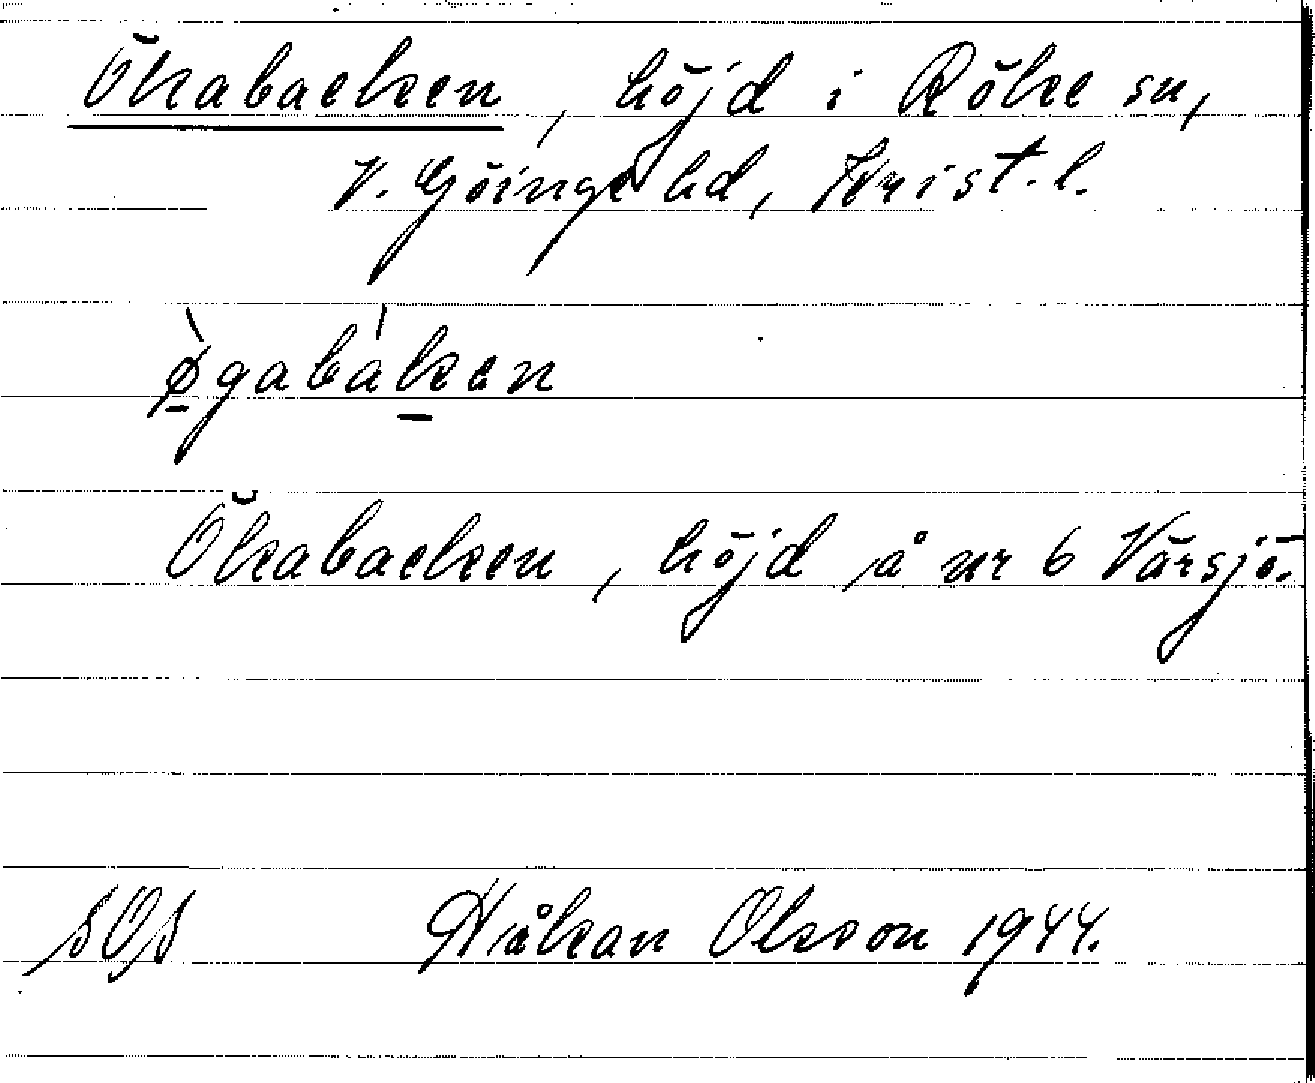 Ökabacken, höjd i Röke sn,
V. Göinge hd, Krist. l.
ø̀gabàken
Ökabacken, höjd å nr 6 Värsjö.
sOs Håkan Olsson 1944.